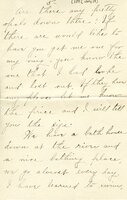 Are there any pretty
opals down there? If
there are would like to
have you get me one for
my ring, you know the
one that I had broke
and lost out of they don
the price and I will tell
you the size.
We have a bath house
down at the river and
a nice bathing place,
we go almost every day
I have learned to swim